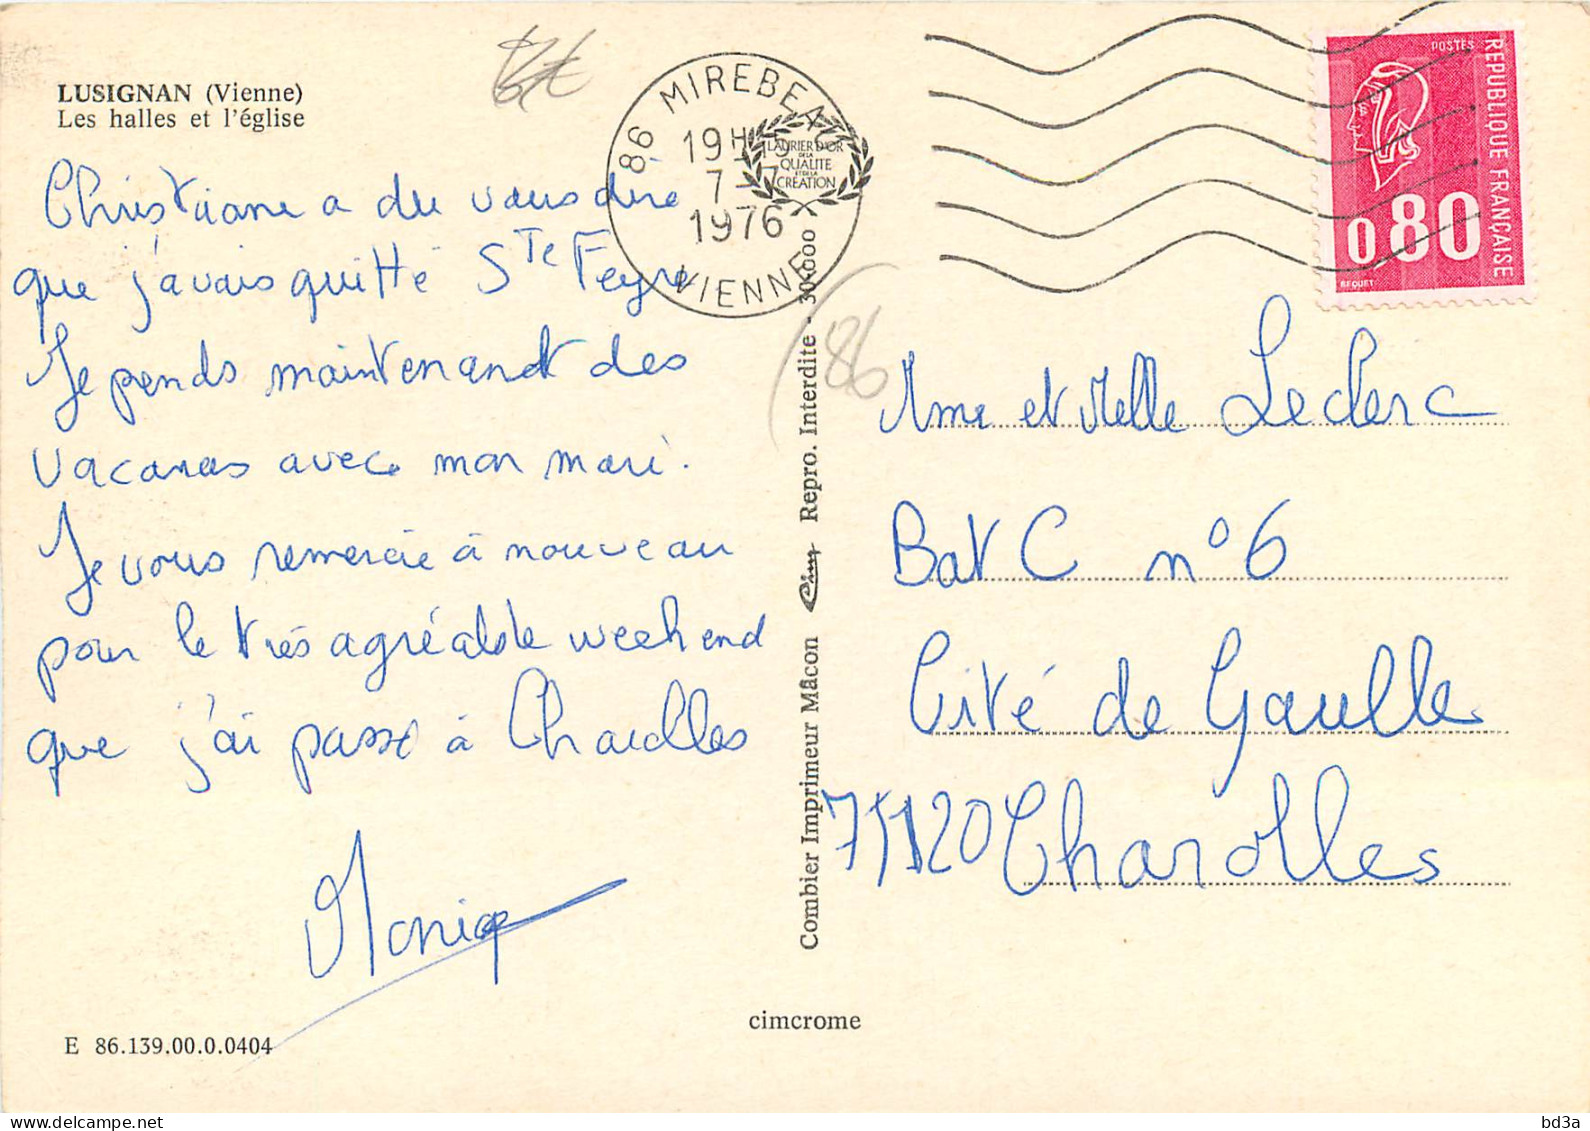 LUSIGNAN (Vienne)
Les halles et l'église
Christiane a du vous dire
que j'avais quitté Ste Feyre
Je prends maintenant des
vacances avec mon mari.
Je vous remercie à nouveau
pour le très agréable weekend
que j'ai passé à Charolles
Moniq
E 86.139.00.0.0404
86 MIREBEAU
19H15
7-7
1976
VIENNE
LAURIER D'OR
DE LA
QUALITE
ET DE LA
CREATION
86
Combier Imprimeur Mâcon Cim Repro. Interdite - 30.000
cimcrome
POSTES
REPUBLIQUE FRANÇAISE
0,80
BEQUET
Mme et Melle Leclerc
Bat C n°6
Cité de Gaulle
71120 Charolles
bd3a